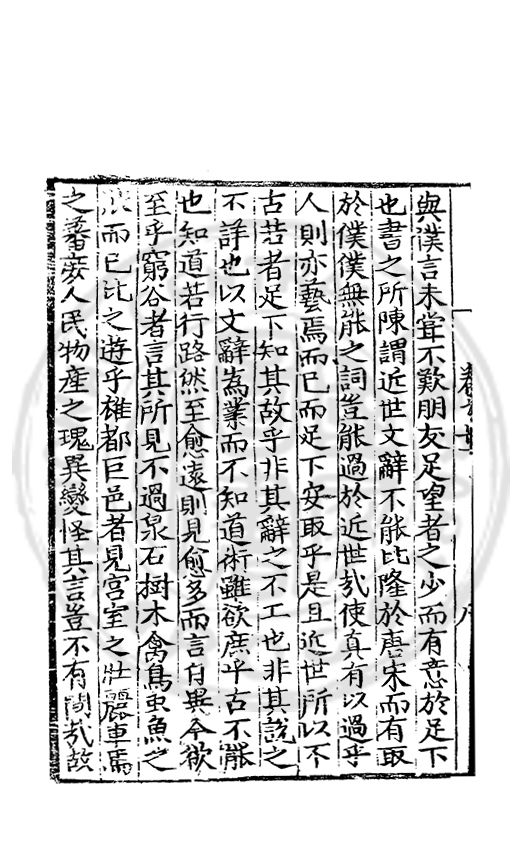 與僕言未嘗不歎朋友足望者之少而有意於足下
也書之所陳謂近世文辭不能比隆於唐宋而有取
於僕僕無能之詞豈能過於近世哉使真有以過乎
人則亦藝焉而已而足下安取乎是且近世所以不
古若者足下知其故乎非其辭之不工也非其說之
不詳也以文辭為業而不知道術雖欲庶乎古不能
也知道若行路然至愈遠則見愈多而言自異今欲
至乎窮谷者言其所見不過泉石樹木禽鳥虫魚之
而已比之遊乎雄都巨邑者見宮室之壯麗車馬
之蕃庶人民物產之瑰異變怪其言豈不有間哉故